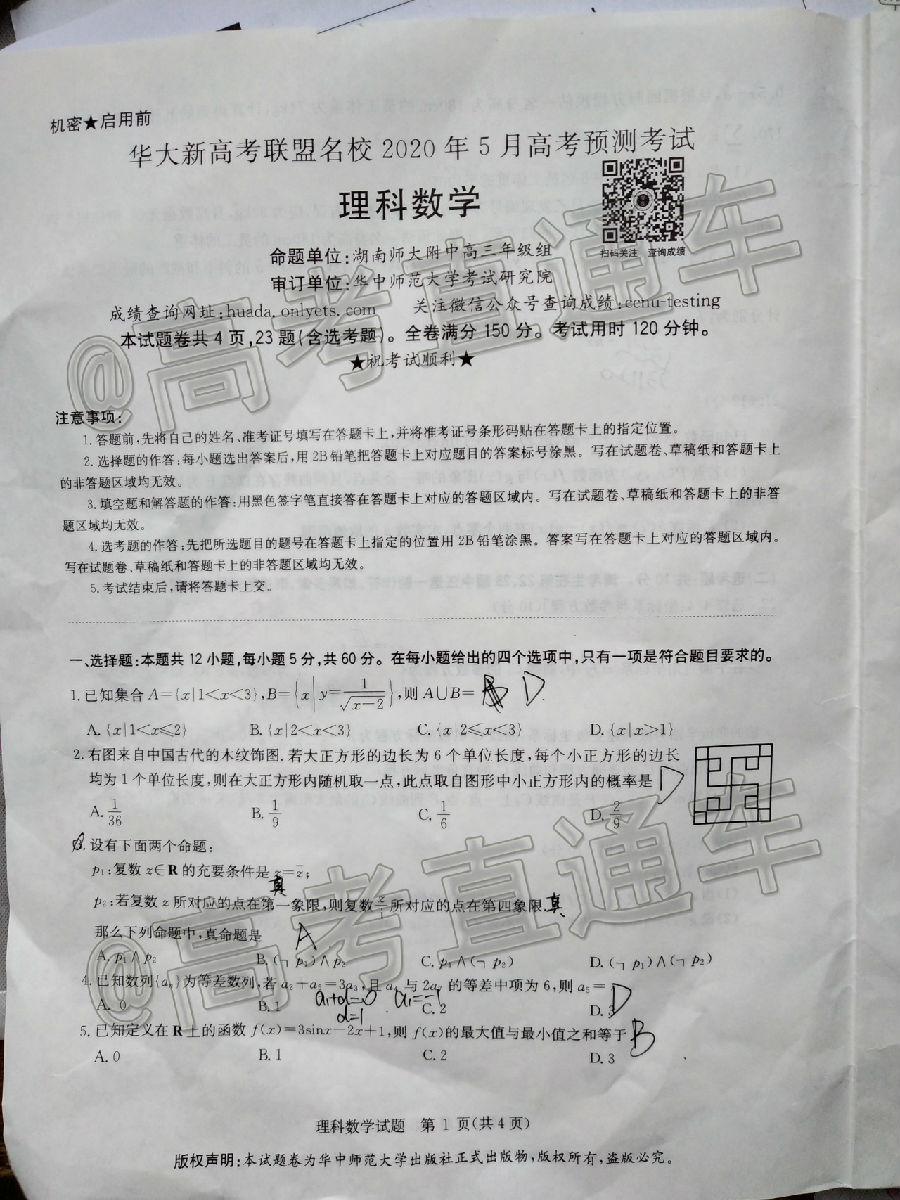 机密★启用前
华大新高考联盟名校2020年5月高考预测考试
理科数学
扫码关注 查询成绩
命题单位:湖南师大附中高三年级组
审订单位:华中师范大学考试研究院
成绩查询网址:huada.onlyets.com 关注微信公众号查询成绩:ccnu-testing
本试题卷共4页,23题(含选考题)。全卷满分150分。考试用时120分钟。
★祝考试顺利★
@高考直通车
注意事项:
1.答题前,先将自己的姓名、准考证号填写在答题卡上,并将准考证号条形码贴在答题卡上的指定位置。
2.选择题的作答:每小题选出答案后,用2B铅笔把答题卡上对应题目的答案标号涂黑。写在试题卷、草稿纸和答题卡上
的非答题区域均无效。
3.填空题和解答题的作答:用黑色签字笔直接答在答题卡上对应的答题区域内。写在试题卷、草稿纸和答题卡上的非答
题区域均无效。
4.选考题的作答:先把所选题目的题号在答题卡上指定的位置用2B铅笔涂黑。答案写在答题卡上对应的答题区域内。
写在试题卷、草稿纸和答题卡上的非答题区域均无效。
5.考试结束后,请将答题卡上交。
一、选择题:本题共12小题,每小题5分,共60分。在每小题给出的四个选项中,只有一项是符合题目要求的。
1.已知集合A={x|1<x<3},B={x|y=1/√(x-2)},则A∪B= D
A.{x|1<x≤2} B.{x|2<x<3} C.{x|2≤x<3} D.{x|x>1}
2.右图来自中国古代的木纹饰图.若大正方形的边长为6个单位长度,每个小正方形的边长
均为1个单位长度,则在大正方形内随机取一点,此点取自图形中小正方形内的概率是 D
A.1/36 B.1/9 C.1/6 D.2/9
3.设有下面两个命题:
p₁:复数z∈R的充要条件是z=z̄;
真
p₂:若复数z所对应的点在第一象限,则复数 所对应的点在第四象限. 真
那么下列命题中,真命题是 A
A.p₁∧p₂ B.(¬p₁)∧p₂ C.p₁∧(¬p₂) D.(¬p₁)∧(¬p₂)
4.已知数列{aₙ}为等差数列,若 =3 ,且 与2 的等差中项为6,则a₅= D
A.0 B.1 C.2
a₁+d=0 a₁=-1
d=1
5.已知定义在R上的函数f(x)=3sinx-2x+1,则f(x)的最大值与最小值之和等于 B
A.0 B.1 C.2 D.3
理科数学试题 第1页(共4页)
版权声明:本试题卷为华中师范大学出版社正式出版物,版权所有,盗版必究。
@高考直通车